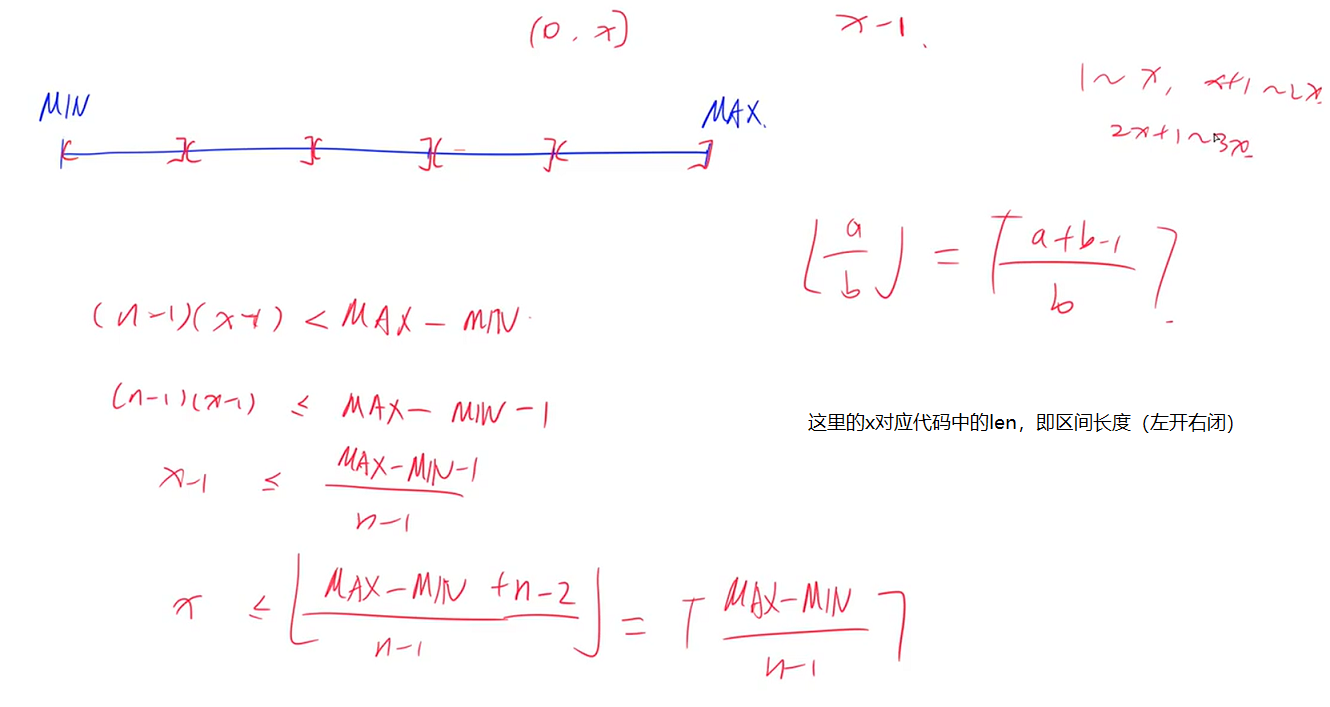 (0, x]
x-1.
1~x, x+1~2x
2x+1~3x
MIN
MAX.
⌊a/b⌋ = ⌈(a+b-1)/b⌉.
(n-1)(x-1) < MAX - MIN.
(n-1)(x-1) ≤ MAX - MIN - 1
x-1 ≤ (MAX-MIN-1)/(n-1)
x ≤ ⌊(MAX-MIN+n-2)/(n-1)⌋ = ⌈(MAX-MIN)/(n-1)⌉
这里的x对应代码中的len，即区间长度（左开右闭）